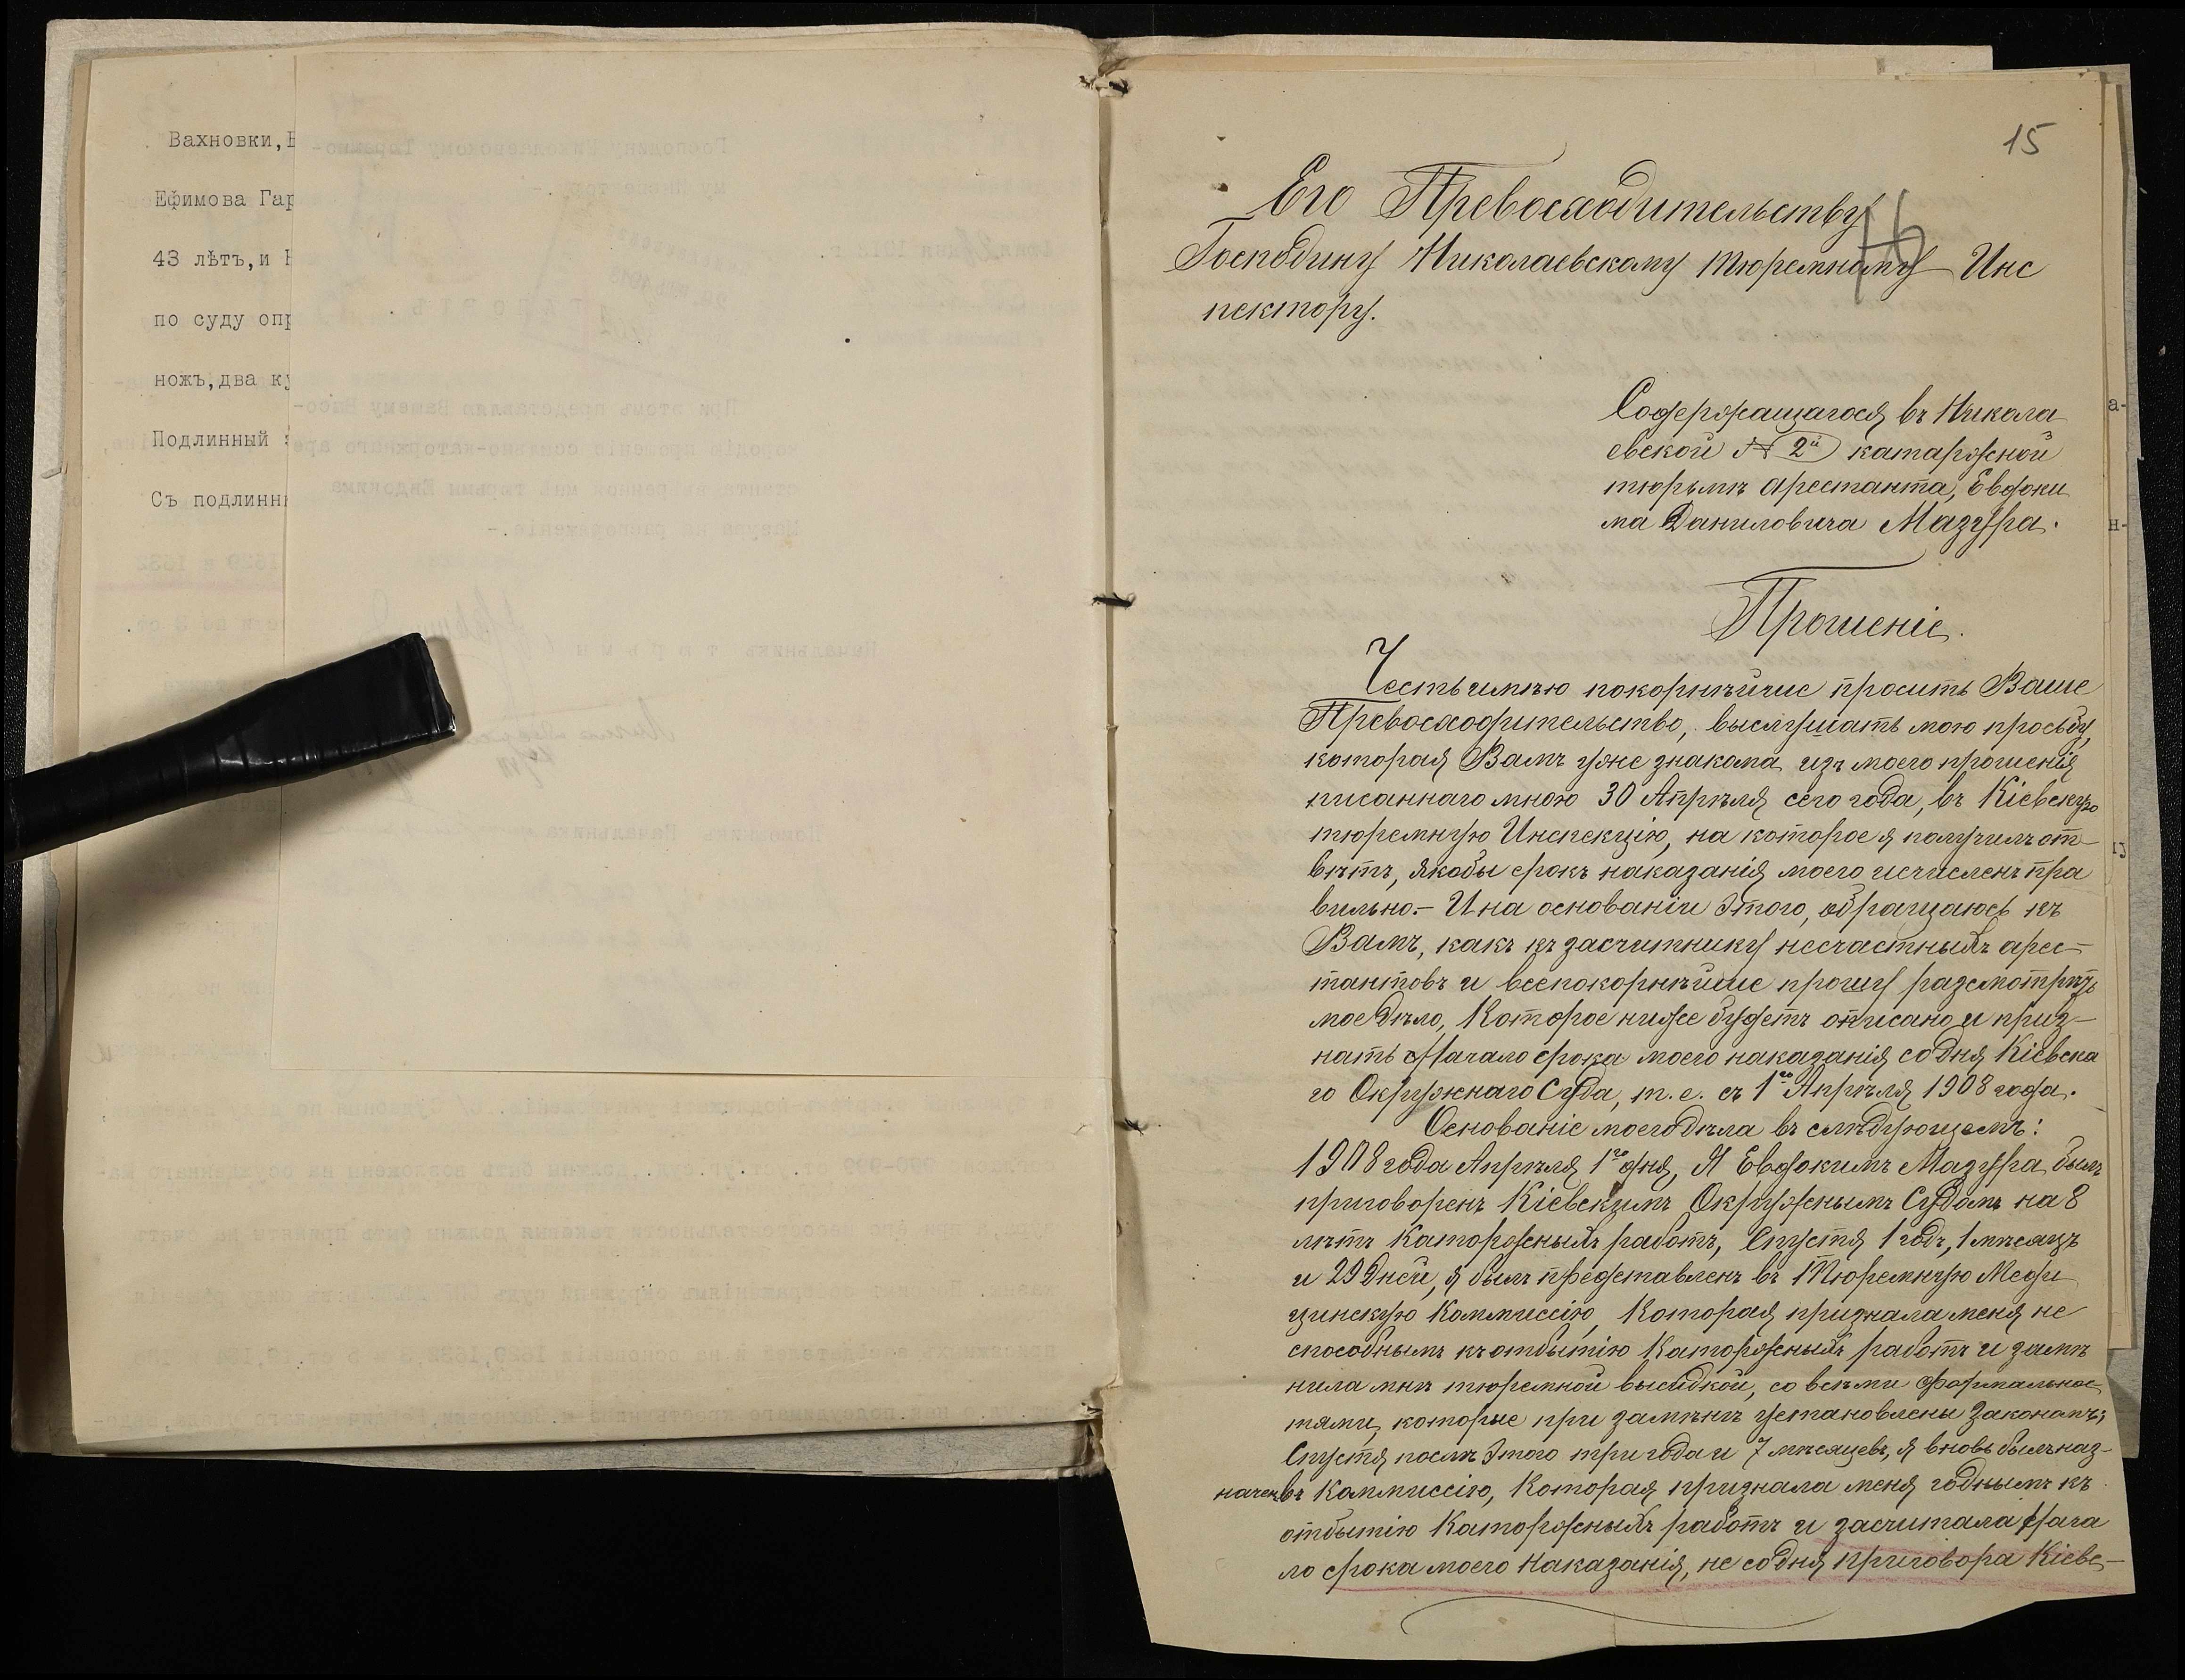 Вахновки,
Ефимова Гар
43 лѣтъ,и
по суду опр
ножъ,два ку
Подлинный
Съ подлинн
15
Его Превосходительству
Господину Николаевскому тюремному Инс
пектору.
Содержащагося въ Никола
евской № 2й катаржной
тюрьмѣ арестанта, Евдоки
ма Даниловича Мазура.
Прошеніе.
Честь имѣю покорнѣйше просить Ваше
Превосходительство, выслушать мою просьбу,
которая Вамъ уже знакома изъ моего прошенія
писаннаго мною 30 Апрѣля сего года, въ Кіевскую
тюремную Инспекцію, на которое я получилъ от-
вѣтъ, якобы срокъ наказанія моего исчисленъ пра
вильно.- И на основаніи этого, обращаюсь къ
Вамъ, какъ къ засчитнику несчастныхъ арес-
тантовъ и всепокорнѣйше прошу разсмотрѣть
мое дѣло, Которое ниже будетъ описано и приз-
нать Начало срока моего наказанія со дня Кіевска
го Окружнаго Суда, т. е. съ 1го Апрѣля 1908 года.
Основаніе моего дѣла въ слѣдующемъ:
1908 года Апрѣля 1го дня, Я Евдокимъ Мазура былъ
приговоренъ Кіевскимъ Окружнымъ Судомъ на 8
лѣтъ Каторжныхъ работъ, Спустя 1 годъ, 1 мѣсяцъ
и 29 дней, я былъ представленъ въ Тюремную Меди
цинскую Коммиссію, Которая признала меня не
способнымъ къ отбытію Каторжныхъ работъ и замѣ
нила мнѣ тюремной высидкой, со всѣми формальнос
тями, которые при замѣнѣ установлены Закономъ;
Спустя послѣ этого три года и 7 мѣсяцевъ, я вновь былъ наз-
наченъ въ Коммиссію, Которая признала меня годнымъ къ
отбытію Каторжныхъ работъ и засчитала Нача
ло срока моего Наказанія, не со дня приговора Кіевс-